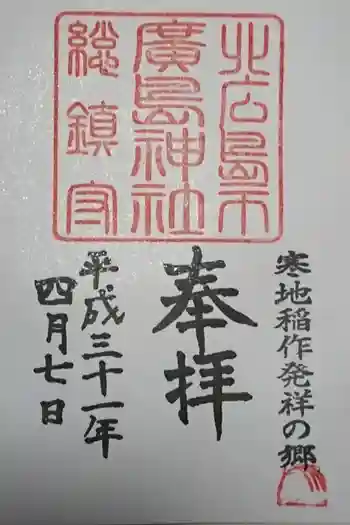 北広島市
廣島神社
総鎮守
寒地稲作発祥の郷
奉拝
平成三十一年
四月七日